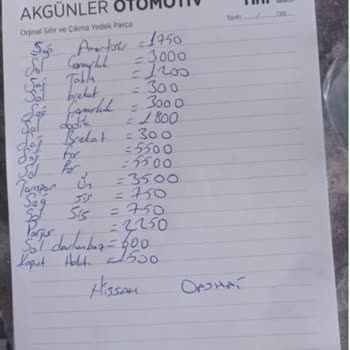 AKGÜNLER OTOMOTİV
Orjinal Sıfır ve Çıkma Yedek Parça
Tarih: ...../...../20....
Sağ Amortisör = 1750
Sol Çamurluk = 3000
Sağ Tabla = 1200
Sol braket = 300
Sağ Çamurluk = 3000
Sol = 1800
Sağ Braket = 300
Sağ Far = 5500
Sol Far = 5500
Tampon Ön = 3500
Sağ Sis = 750
Sol Sis = 750
= 2250
Sol davlunbaz = 600
Kaput = 1500
HISSAM